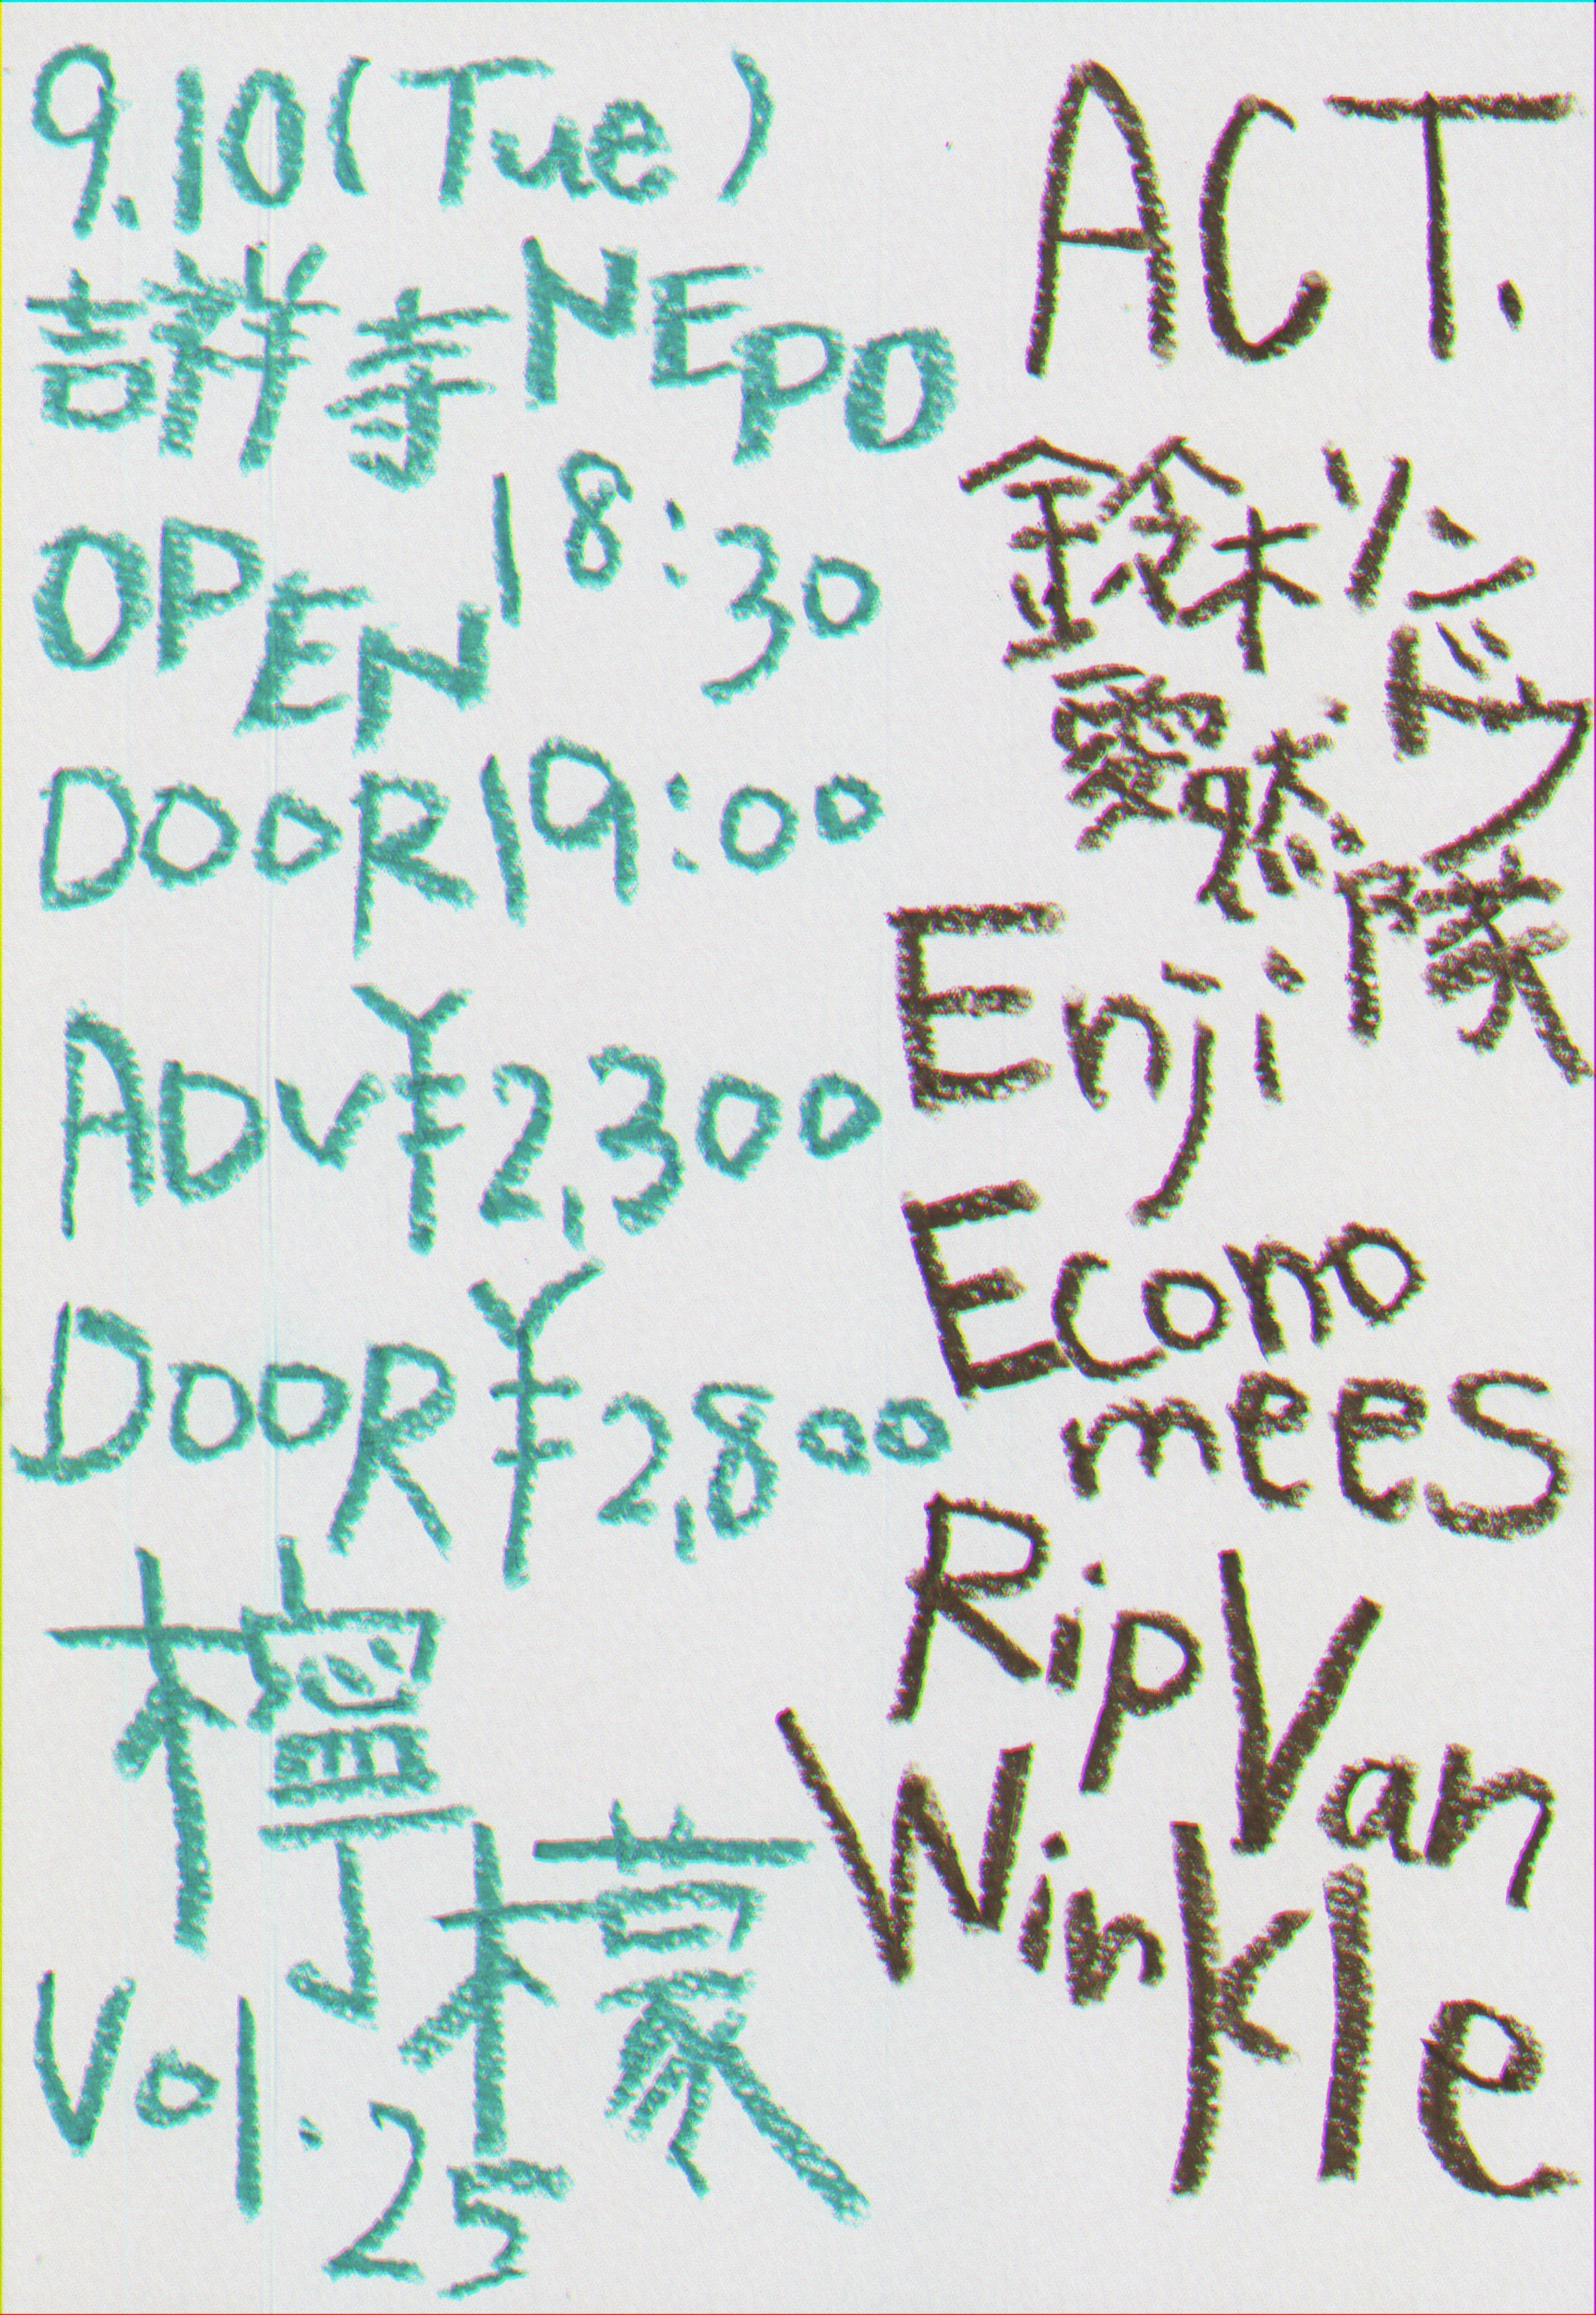 9.10(Tue)
吉祥寺NEPO
OPEN 18:30
DOOR 19:00
ADV¥2,300
DOOR¥2,800
檸檬
Vol.25
ACT.
鈴木
隊
Enji
Econo
mees
Rip Van
Winkle